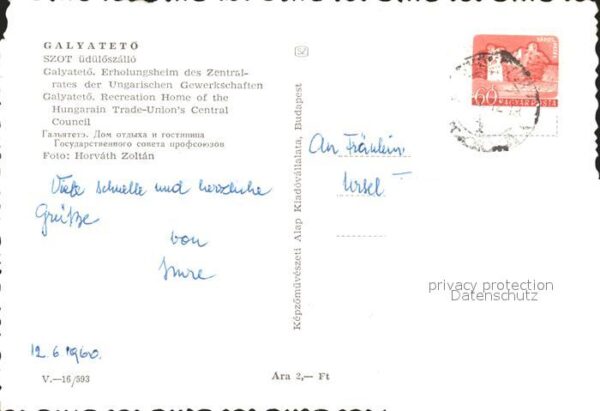 GALYATETŐ
SZOT üdülőszálló
Galyatető. Erholungsheim des Zentral-
rates der Ungarischen Gewerkschaften
Galyatető. Recreation Home of the
Hungarain Trade-Union's Central
Council
Гальятетэ. Дом отдыха и гостиница
Государственного совета профсоюзов
Foto: Horváth Zoltán
Viele schnelle und herzliche
Grütze
von
Imre
12. 6. 1960.
V.—16/593
Képzőművészeti Alap Kiadóvállalata, Budapest
Ara 2,— Ft
60 MAGYAR POSTA
An Fräulein
Ursel
privacy protection
Datenschutz